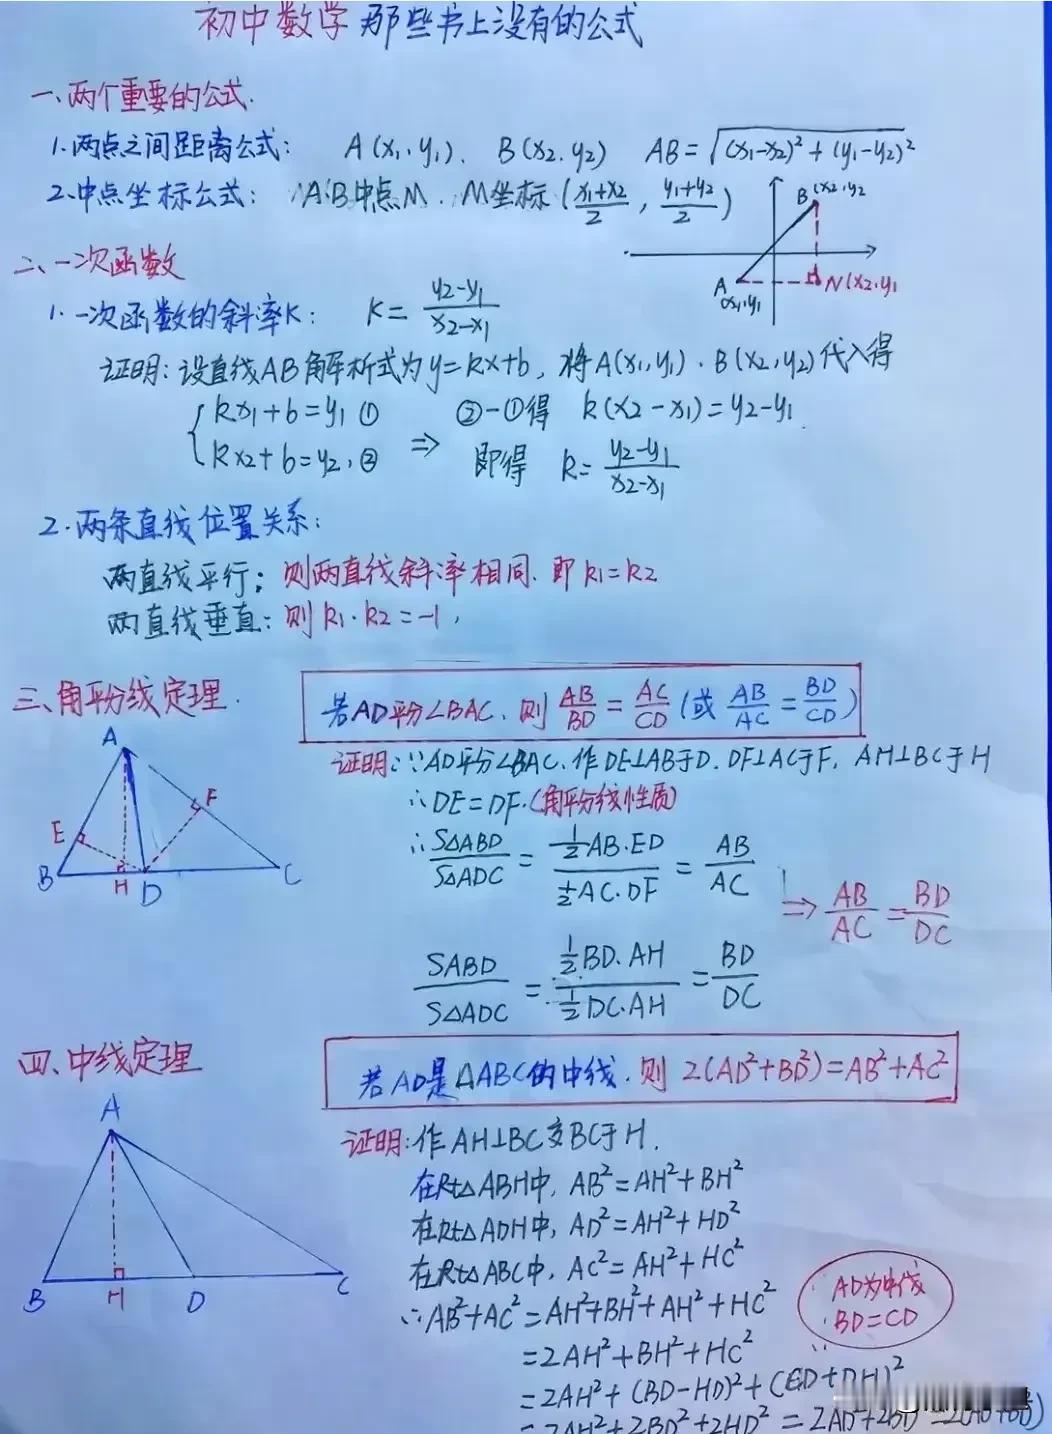 初中数学 那些书上没有的公式
一、两个重要的公式.
1.两点之间距离公式: A(x₁,y₁). B(x₂.y₂) AB=√((x₁-x₂)²+(y₁-y₂)²)
2.中点坐标公式: A.B中点M. M坐标((x₁+x₂)/2, (y₁+y₂)/2)
B(x₂,y₂
A
(x₁,y₁
N(x₂,y₁
二、一次函数
1.一次函数的斜率K: K=(y₂-y₁)/(x₂-x₁)
证明:设直线AB解析式为y=kx+b, 将A(x₁,y₁).B(x₂,y₂)代入得
{kx₁+b=y₁ ① ②-①得 k(x₂-x₁)=y₂-y₁.
kx₂+b=y₂.② ⇒ 即得 k=(y₂-y₁)/(x₂-x₁)
2.两条直线位置关系:
两直线平行; 则两直线斜率相同.即k₁=k₂
两直线垂直: 则k₁·k₂=-1,
三、角平分线定理.
若AD平分∠BAC.则AB/BD=AC/CD(或AB/AC=BD/CD)
证明:∵AD平分∠BAC.作DE⊥AB于D.DF⊥AC于F, AH⊥BC于H
∴DE=DF.(角平分线性质)
∴S△ABD/S△ADC=(½AB·ED)/(½AC·DF)=AB/AC
⇒AB/AC=BD/DC
SABD/S△ADC=(½BD.AH)/(½DC.AH)=BD/DC
A
E
F
B
H
D
C
四、中线定理
若AD是△ABC的中线.则2(AD²+BD²)=AB²+AC²
证明:作AH⊥BC交BC于H.
在Rt△ABH中, AB²=AH²+BH²
在Rt△ADH中, AD²=AH²+HD²
在Rt△ABC中, AC²=AH²+HC²
∴AB²+AC²=AH²+BH²+AH²+HC²
=2AH²+BH²+HC²
=2AH²+(BD-HD)²+(CD+DH)²
=2AH²+2BD²+2HD²=2AD²+2BD²=2(AD²+BD²)
AD为中线
BD=CD
A
B
H
D
C